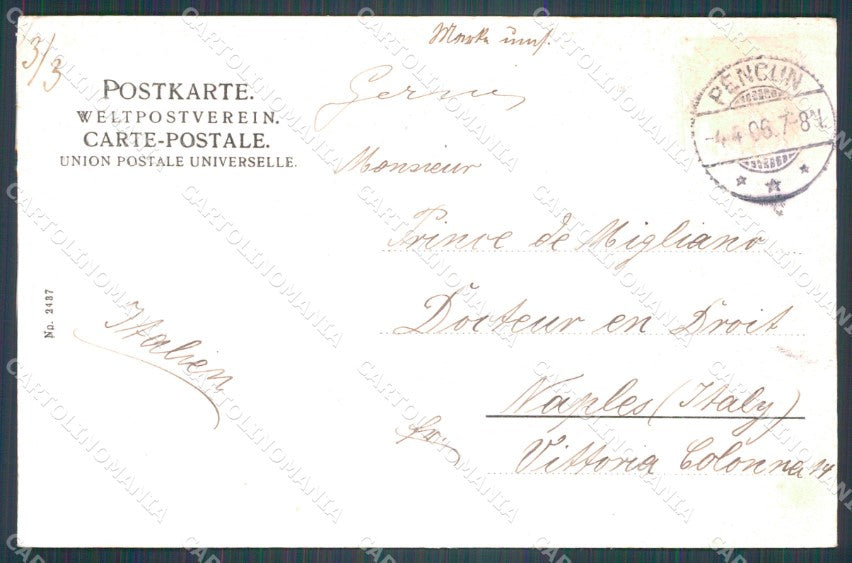 3/3
Marke ums.
POSTKARTE.
WELTPOSTVEREIN.
CARTE-POSTALE.
UNION POSTALE UNIVERSELLE.
PENCUN
-4.4.06.7-8N.
Monsieur
Prince de Migliano
Docteur en Droit
Naples (Italy)
Vittoria Colonna 14
fr.
Italien
No. 2437
CARTOLINOMANIA